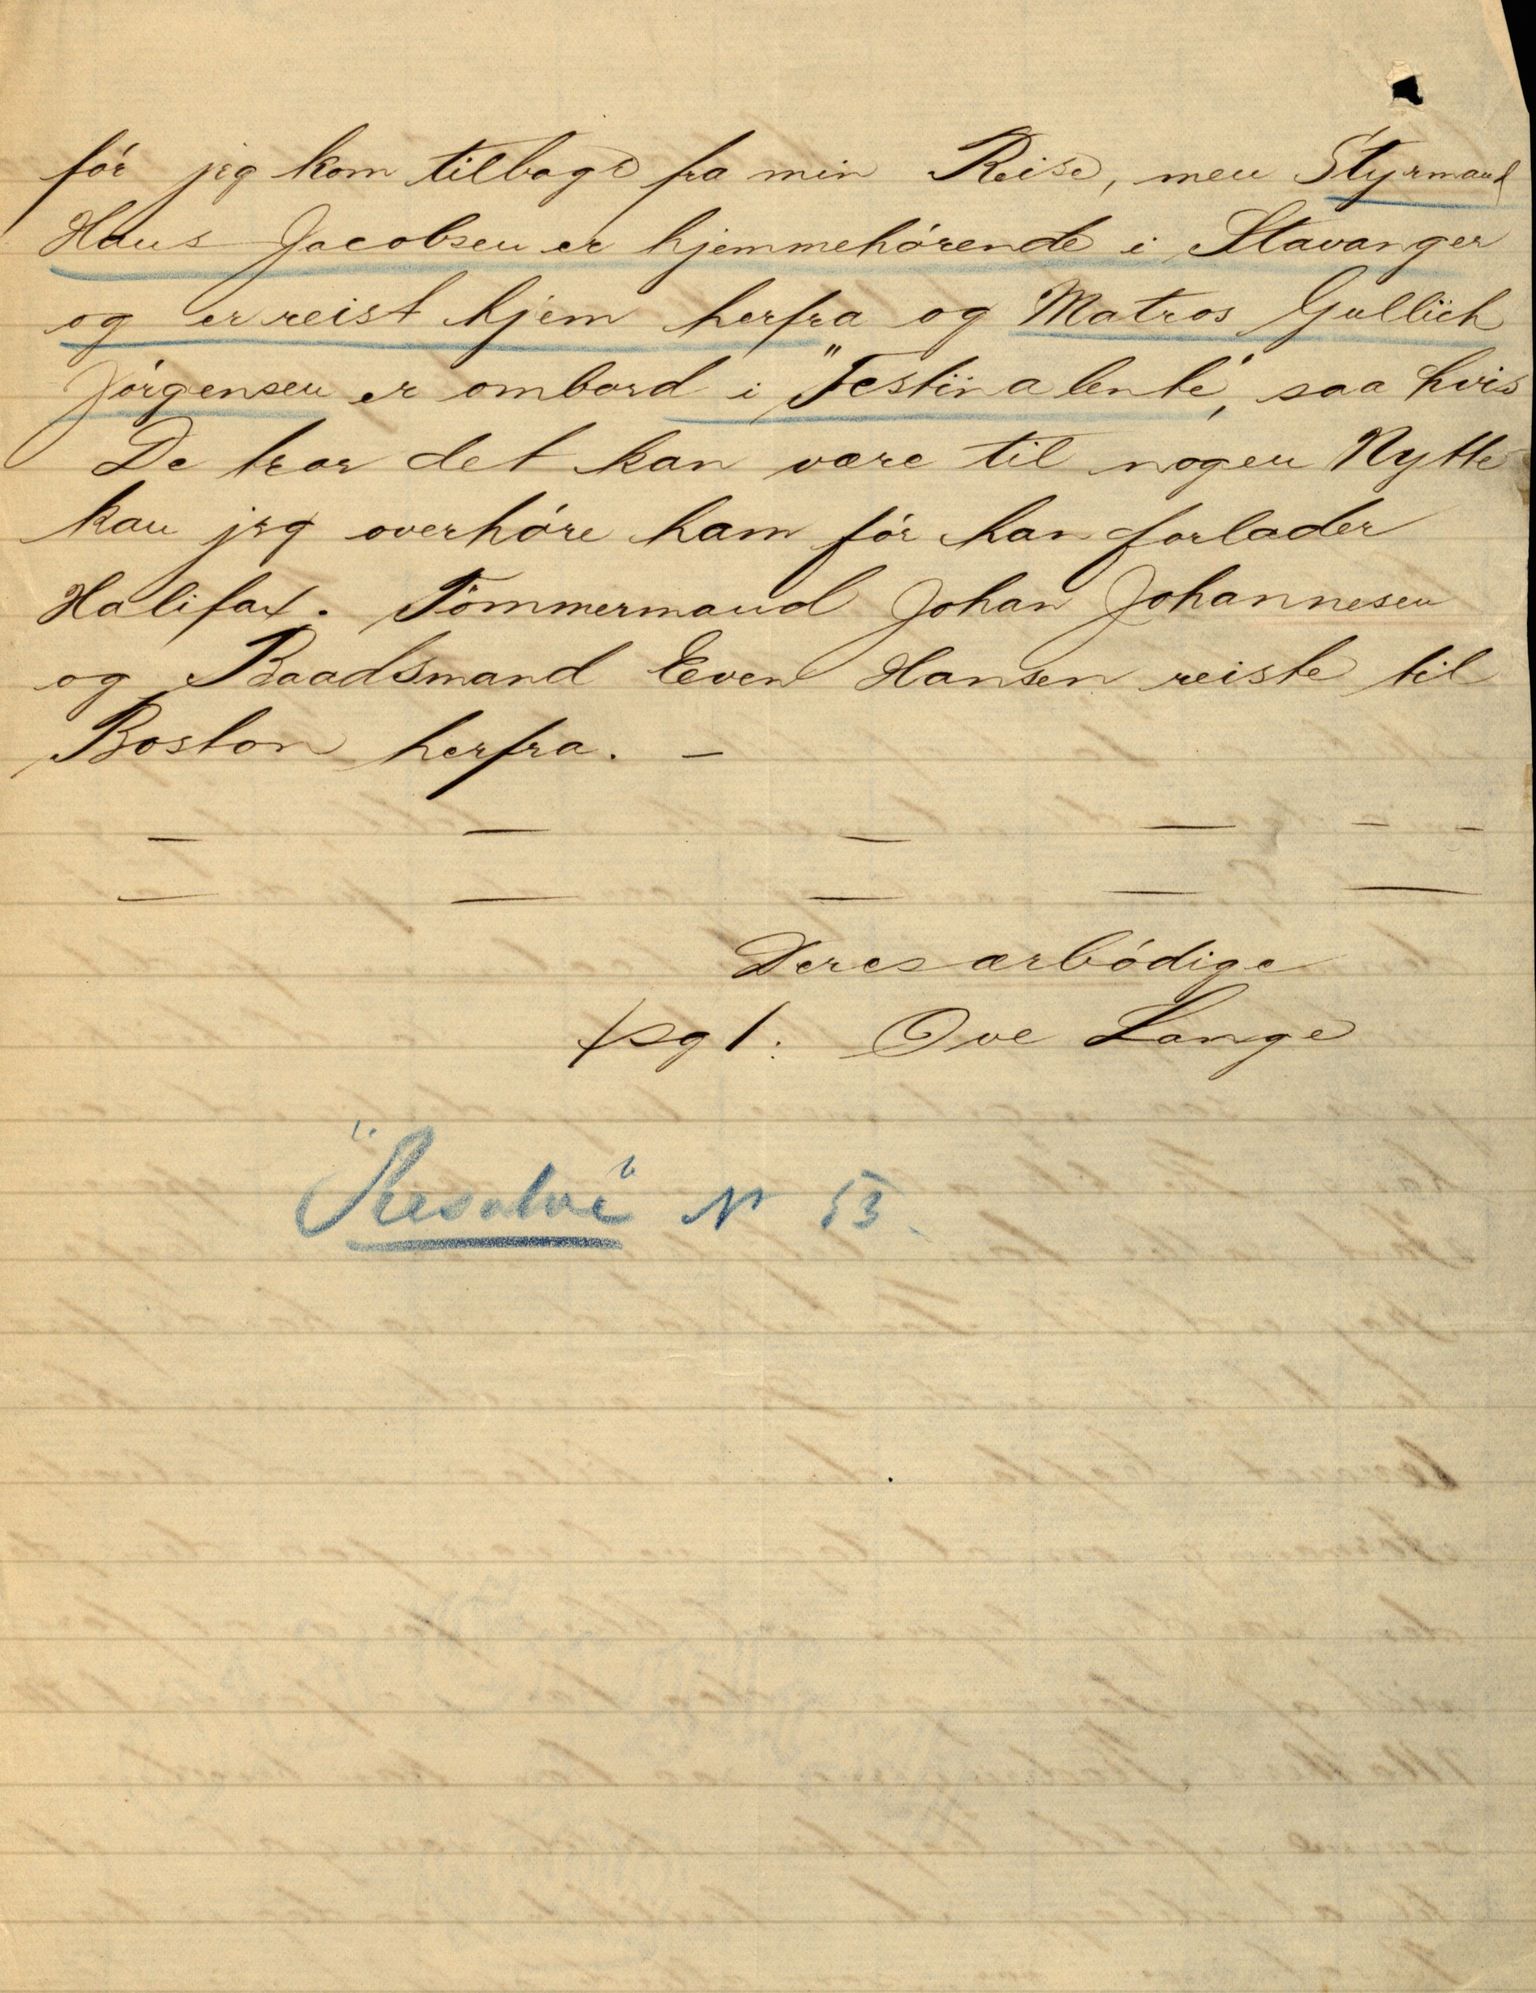 för jeg kom tilbage fra min Reise, men Styrmand
Hans Jacobsen er hjemmehörende i Stavanger
og er reist hjem herfra og Matros Gullich
Jörgensen er ombord i "Festina lente", saa hvis
De tror det kan være til nogen Nytte
kan jeg overhöre ham för han forlader
Halifax. Tömmermand Johan Johannesen
og Baadsmand Even Hansen reiste til
Boston herfra. —
— — — — — —
— — — — —
Deres ærbödige
/sg/. Ove Lange
"Resolve" N 53.